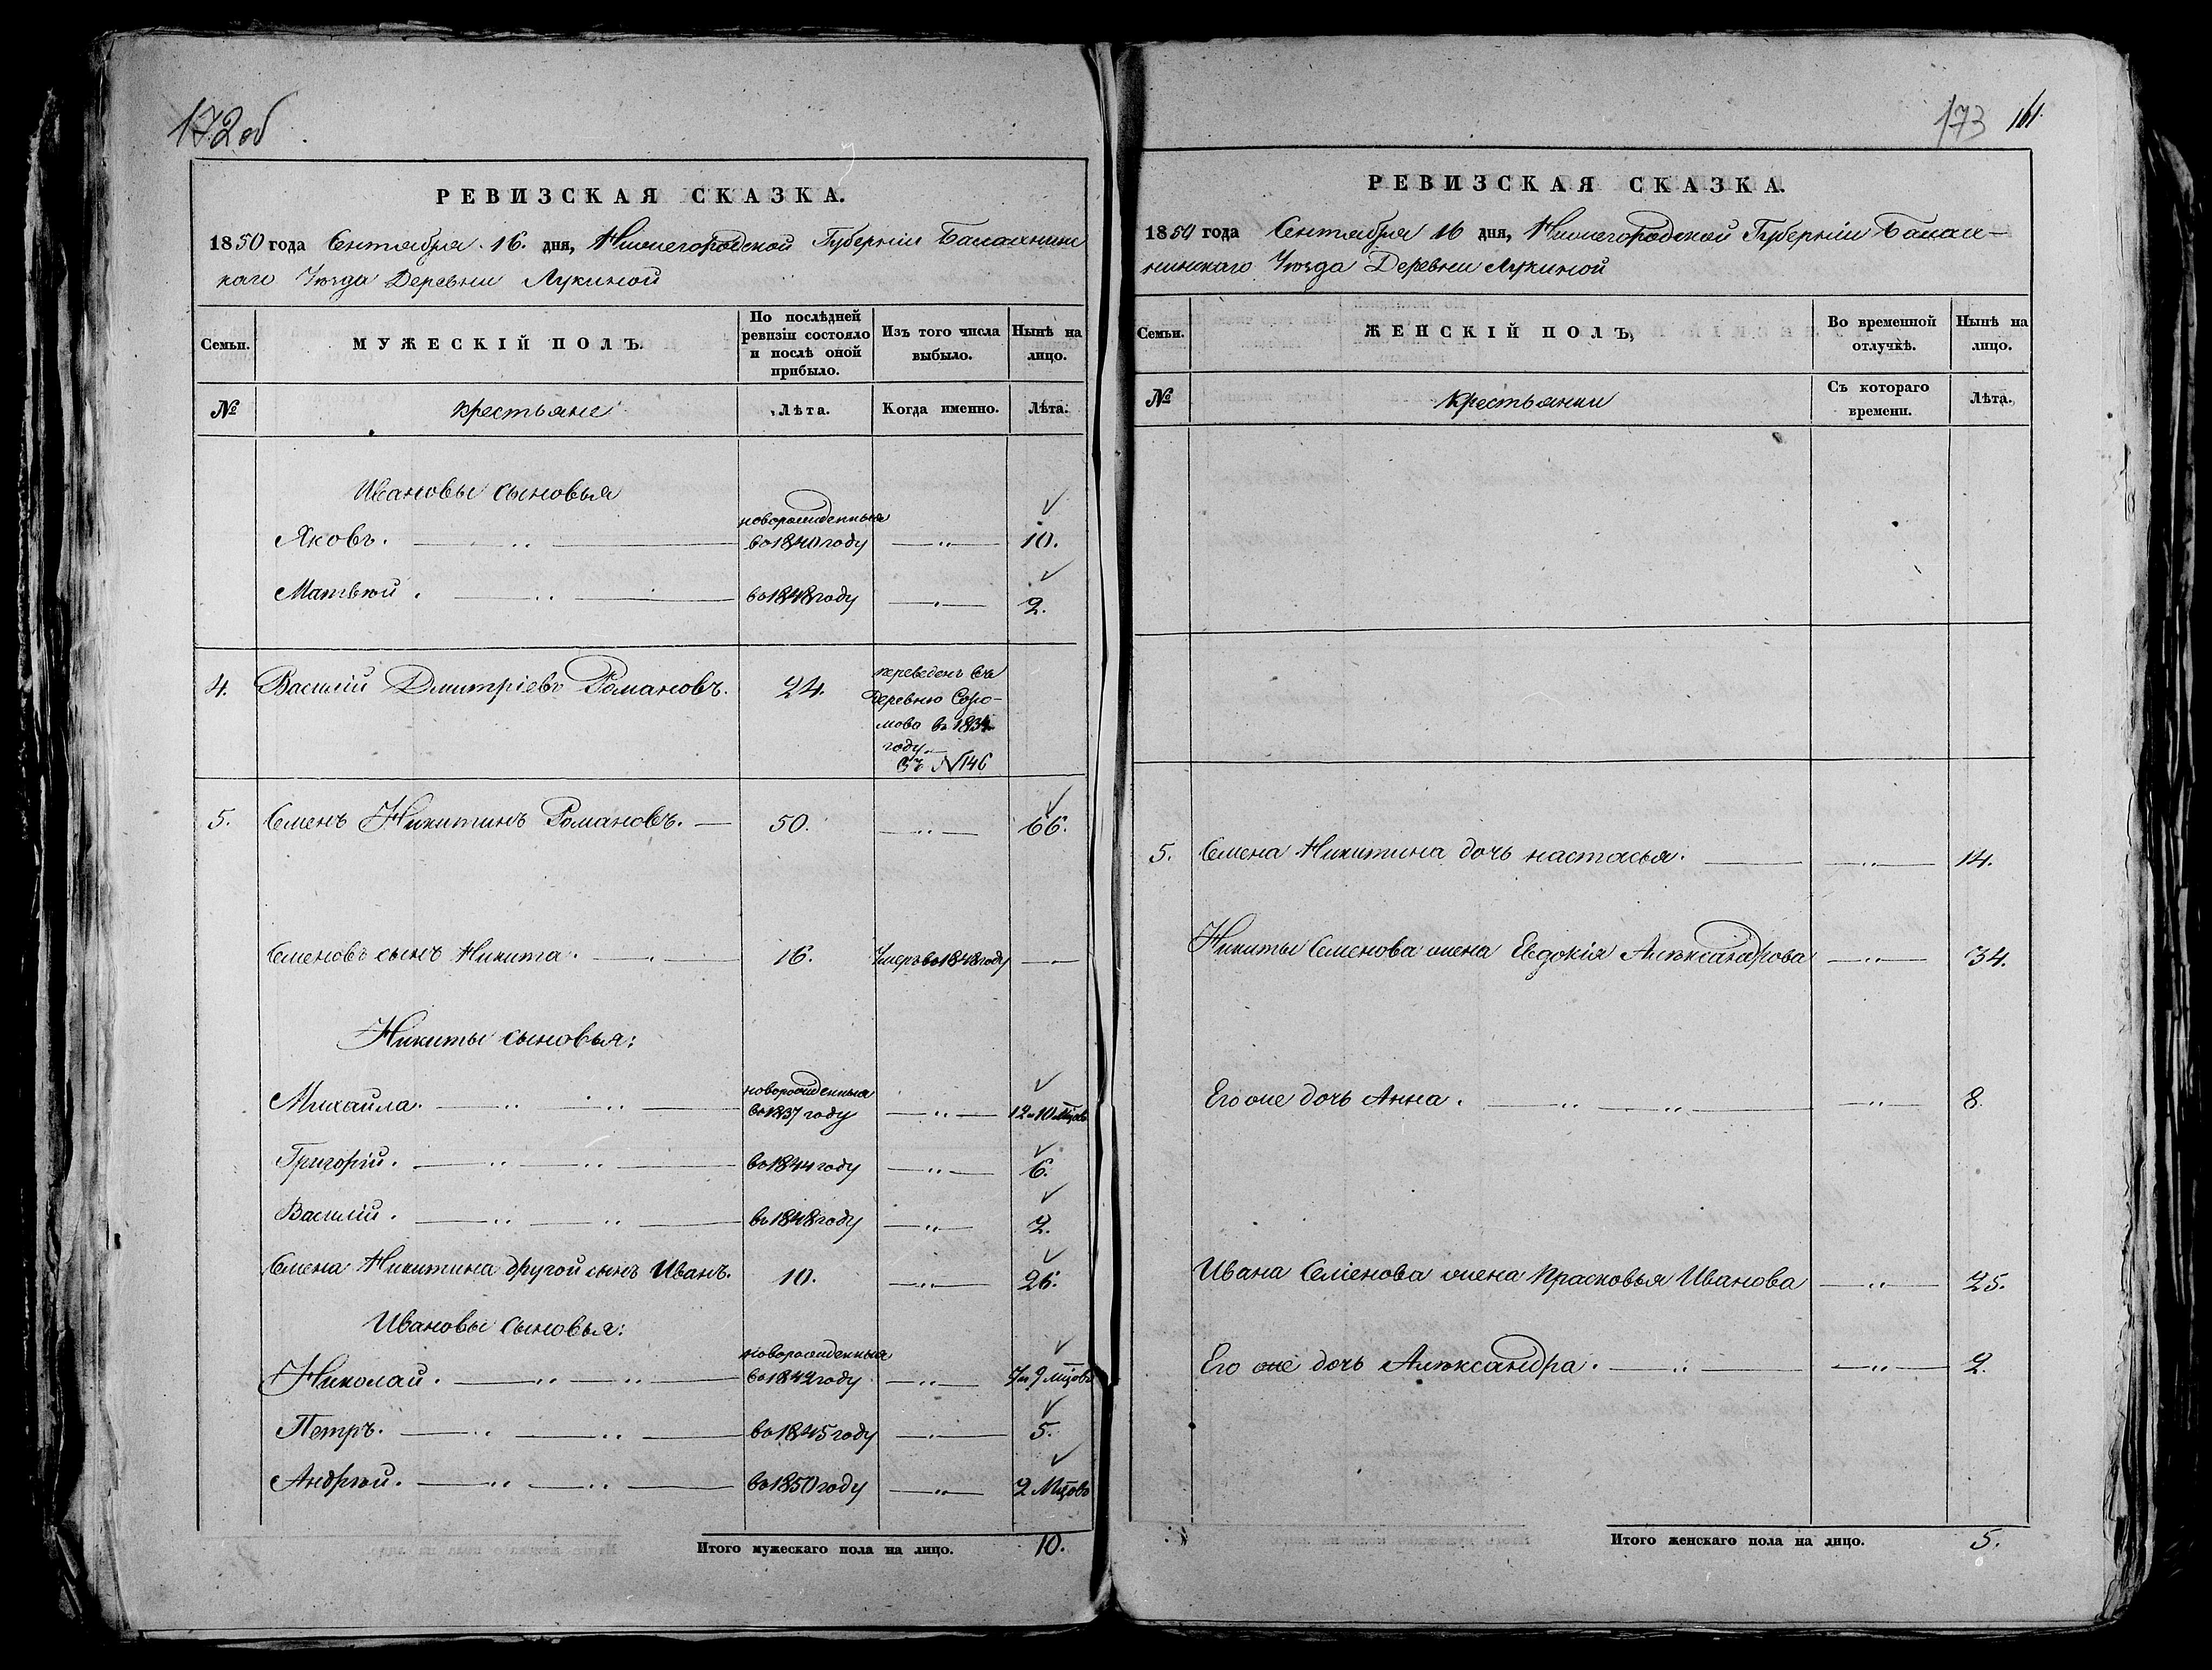 172 об
РЕВИЗСКАЯ СКАЗКА.
1850 года Сентября 16. дня, Нижегородской Губерніи Балахнинс
каго Уезда Деревни Лукиной
Семьи.
МУЖЕСКІЙ ПОЛЪ.
По послѣдней
ревизіи состояло
и послѣ оной
прибыло.
Изъ того числа
выбыло.
Нынѣ на
лицо.
№
крестьяне
Лѣта.
Когда именно.
Лѣта.
Ивановы сыновья
новорожденныя
Яковъ. во 1840 году 10.
Матвей. во 1848 году 2.
4. Василій Дмитріевъ Романовъ. 24.
переведенъ въ
деревню Сор-
мово въ 1834
году.
№146
5. Семенъ Никитинъ Романовъ. 50. 66.
Семеновъ сынъ Никита. 16. Умеръ во 1848 году
Никиты сыновья:
новорожденныя
Михаила. во 1837 году 12 и 10 Мцовъ
Григорій. во 1844 году 6.
Василій. въ 1848 году 2.
Семена Никитина другой сынъ Иванъ. 10. 26.
Ивановы сыновья:
новорожденныя
Николай. во 1842 году 7 и 9 мцовъ
Петръ. во 1845 году 5.
Андрей. во 1850 году 2 Мцовъ
Итого мужескаго пола на лицо. 10.
173 161.
РЕВИЗСКАЯ СКАЗКА.
1850 года Сентября 16 дня, Нижегородской Губерніи Балах-
нинскаго Уезда Деревни Лукиной
Семьи.
ЖЕНСКІЙ ПОЛЪ,
Во временной
отлучкѣ.
Нынѣ на
лицо.
№
крестьянки
Съ котораго
времени.
Лѣта.
5. Семена Никитина дочь настасья. 14.
Никиты Семенова жена Евдокія Александрова 34.
Его же дочь Анна. 8.
Ивана Семенова жена Прасковья Иванова 25.
Его же дочь Александра. 2.
Итого женскаго пола на лицо. 5.